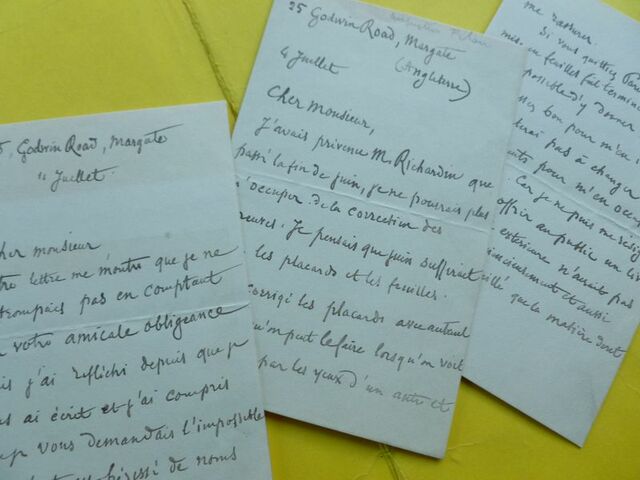 Godwin Road, Margate
11 Juillet.
cher monsieur
lettre me montre que je ne
trompais pas en comptant
votre amicale obligeance
j'ai réflichi depuis que je
ai écrit et j'ai compris
vous demandais l'impossible
de noms
25 Godwin Road, Margate
(Angleterre)
4 Juillet
Cher Monsieur,
J'avais privenu M. Richardin que
passé la fin de juin, je ne pourrais plus
m'occuper de la correction des
. Je pensais que juin suffirait
les placards et les feuilles.
corrigé les placards avec autant
qu'on peut le faire lorsqu'on voit
par les yeux d'un autre et
me rassurer.
Si vous quittez Paris
mise en feuilles fut
possible d'y donner
bon pour m'en
pas à changer
pour m'en
Car je ne puis me
offrir au public un
extérieure n'aurait pas
et aussi
que la matière dont